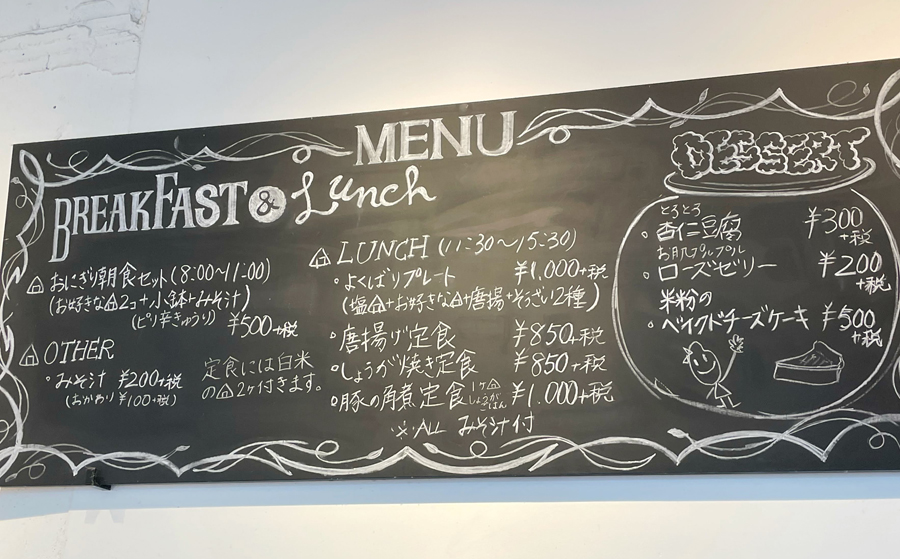 MENU
BREAKFAST & Lunch
おにぎり朝食セット(8:00〜11:00)
(お好きな🍙2コ+小鉢+みそ汁)
(ピリ辛きゅうり) ¥500+税
OTHER
・みそ汁 ¥200+税
(おかわり ¥100+税)
定食には白米
の🍙2ケ付きます。
LUNCH (11:30〜15:30)
・よくばりプレート ¥1,000+税
(塩🍙+お好きな🍙+唐揚+そうざい2種)
・唐揚げ定食 ¥850+税
・しょうが焼き定食 ¥850+税
・豚の角煮定食 1ケ🍙しょうがごはん ¥1.000+税
※ALL みそ汁付
DESSERT
とろとろ
・杏仁豆腐 ¥300+税
お肌プルプル
・ローズゼリー ¥200+税
米粉の
・ベイクドチーズケーキ ¥500+税